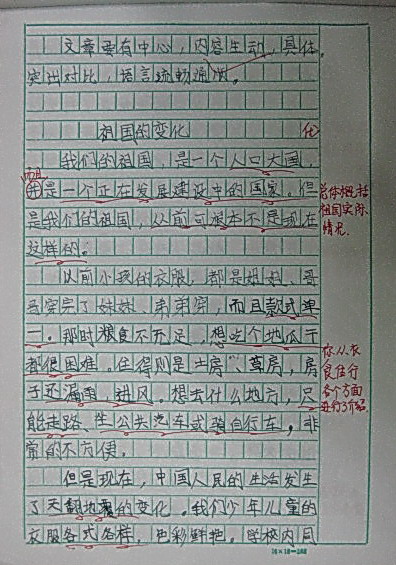 文章要有中心，内容生动，具体，
突出对比，语言流畅通顺。
祖国的变化
优
我们的祖国，是一个人口大国，
而且
也是一个正在发展建设中的国家。但
总体概括
祖国实际
情况.
是我们的祖国，从前可根本不是现在
这样的。
以前小孩的衣服，都是姐姐、哥
哥穿完了妹妹、弟弟穿，而且款式单
一。那时粮食不充足，想吃个地瓜干
都很困难。住得则是土房、草房，房
你从衣
食住行
各个方面
进行了介绍.
子还漏雨、进风。想去什么地方，只
能走路、坐公共汽车或骑自行车，非
常的不方便。
但是现在，中国人民的生活发生
了天翻地覆的变化。我们少年儿童的
衣服各式各样，色彩鲜艳。学校内同
16×18=288